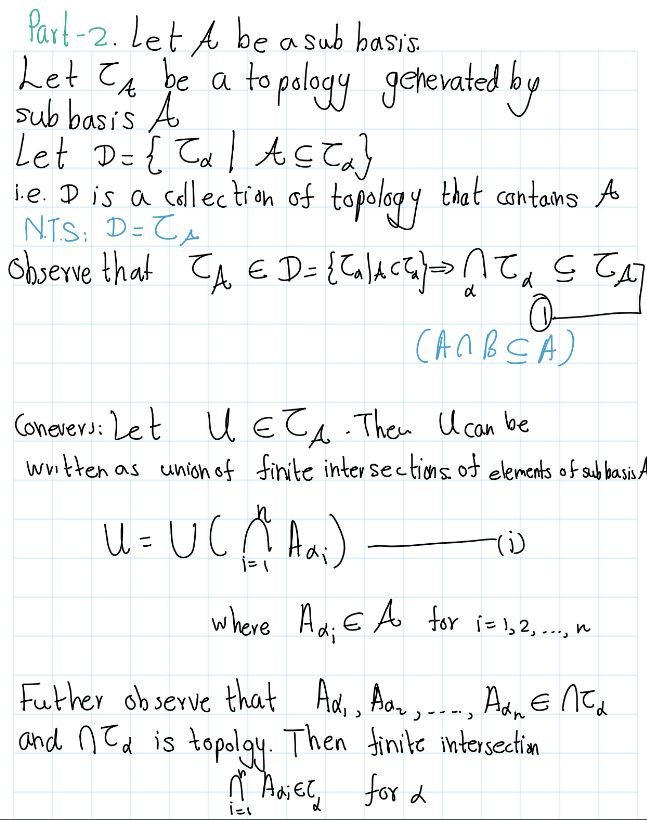 Part-2. Let A be a sub basis.
Let τ_A be a topology generated by
sub basis A
Let D = { τ_α | A ⊆ τ_α }
i.e. D is a collection of topology that contains A
N.T.S: D = τ_A
Observe that τ_A ∈ D = {τ_α | A ⊂ τ_α} ⇒ ⋂_α τ_α ⊆ τ_A
①
(A ∩ B ⊆ A)
Conevers: Let U ∈ τ_A. Then U can be
written as union of finite intersections of elements of sub basis A
U = ∪ ( ⋂_{i=1}^{n} A_{α_i} ) ——— (i)
where A_{α_i} ∈ A for i = 1, 2, ..., n
Futher observe that A_{α_1}, A_{α_2}, ...., A_{α_n} ∈ ∩τ_α
and ∩τ_α is topolgy. Then finite intersection
⋂_{i=1}^{n} A_{α_i} ∈ τ_α for α